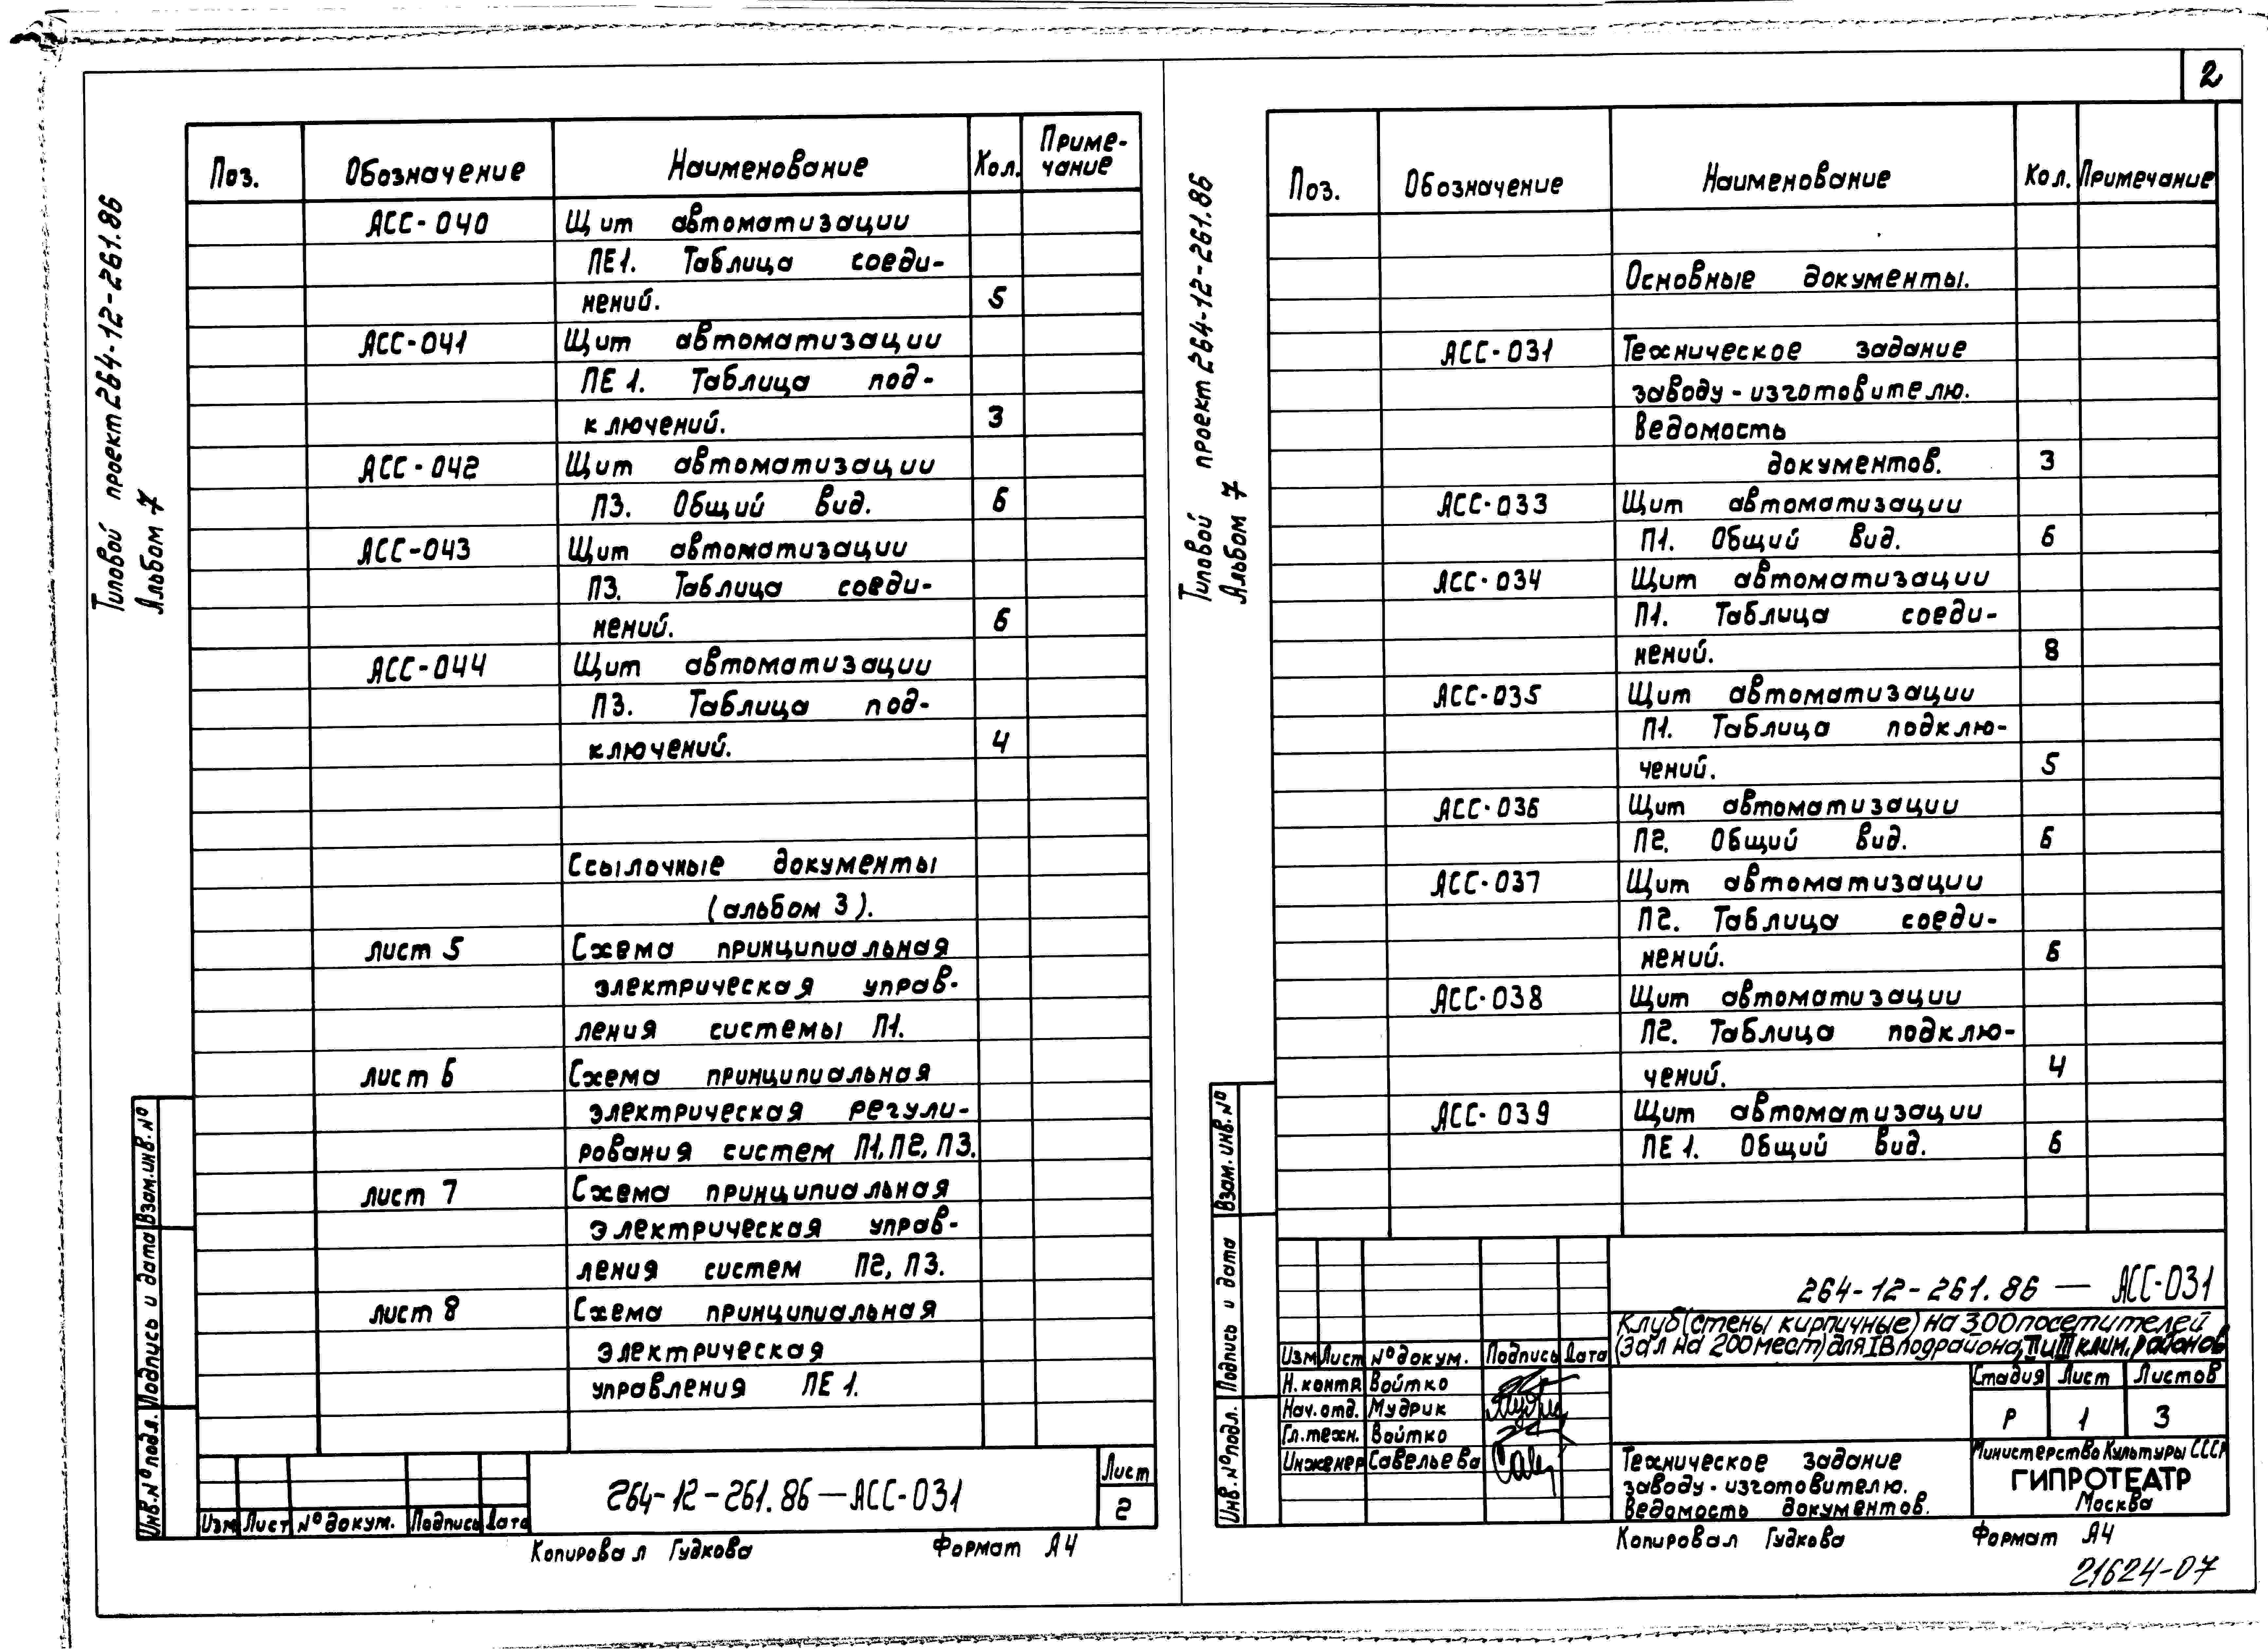 2
Типовой проект 264-12-261.86
Альбом 7
Поз. Обозначение Наименование Кол. Приме-
чание
АСС-040 Щит автоматизации
ПЕ1. Таблица соеди-
нений. 5
АСС-041 Щит автоматизации
ПЕ1. Таблица под-
ключений. 3
АСС-042 Щит автоматизации
П3. Общий вид. 6
АСС-043 Щит автоматизации
П3. Таблица соеди-
нений. 6
АСС-044 Щит автоматизации
П3. Таблица под-
ключений. 4
Ссылочные документы
(альбом 3).
лист 5 Схема принципиальная
электрическая управ-
ления системы П1.
лист 6 Схема принципиальная
электрическая регули-
рования систем П1, П2, П3.
лист 7 Схема принципиальная
электрическая управ-
ления систем П2, П3.
лист 8 Схема принципиальная
электрическая
управления ПЕ1.
Взам. инв. №
Подпись и дата
Инв. № подл.
Изм Лист № докум. Подпись Дата
264-12-261.86—АСС-031
Лист
2
Копировал Гудкова Формат А4
Типовой проект 264-12-261.86
Альбом 7
Поз. Обозначение Наименование Кол. Примечание
Основные документы.
АСС-031 Техническое задание
заводу-изготовителю.
Ведомость
документов. 3
АСС-033 Щит автоматизации
П1. Общий вид. 6
АСС-034 Щит автоматизации
П1. Таблица соеди-
нений. 8
АСС-035 Щит автоматизации
П1. Таблица подклю-
чений. 5
АСС-036 Щит автоматизации
П2. Общий вид. 6
АСС-037 Щит автоматизации
П2. Таблица соеди-
нений. 6
АСС-038 Щит автоматизации
П2. Таблица подклю-
чений. 4
АСС-039 Щит автоматизации
ПЕ1. Общий вид. 6
Взам. инв. №
Подпись и дата
Инв. № подл.
264-12-261.86 — АСС-031
Клуб (стены кирпичные) на 300 посетителей
(зал на 200 мест) для IВ подрайона, II и III клим. районов
Изм Лист № докум. Подпись Дата
Н. контр Войтко
Нач. отд. Мудрик
Гл. техн. Войтко
Инженер Савельева
Стадия Лист Листов
Р 1 3
Техническое задание
заводу-изготовителю.
Ведомость документов.
Министерство Культуры СССР
ГИПРОТЕАТР
Москва
Копировал Гудкова Формат А4
21624-07